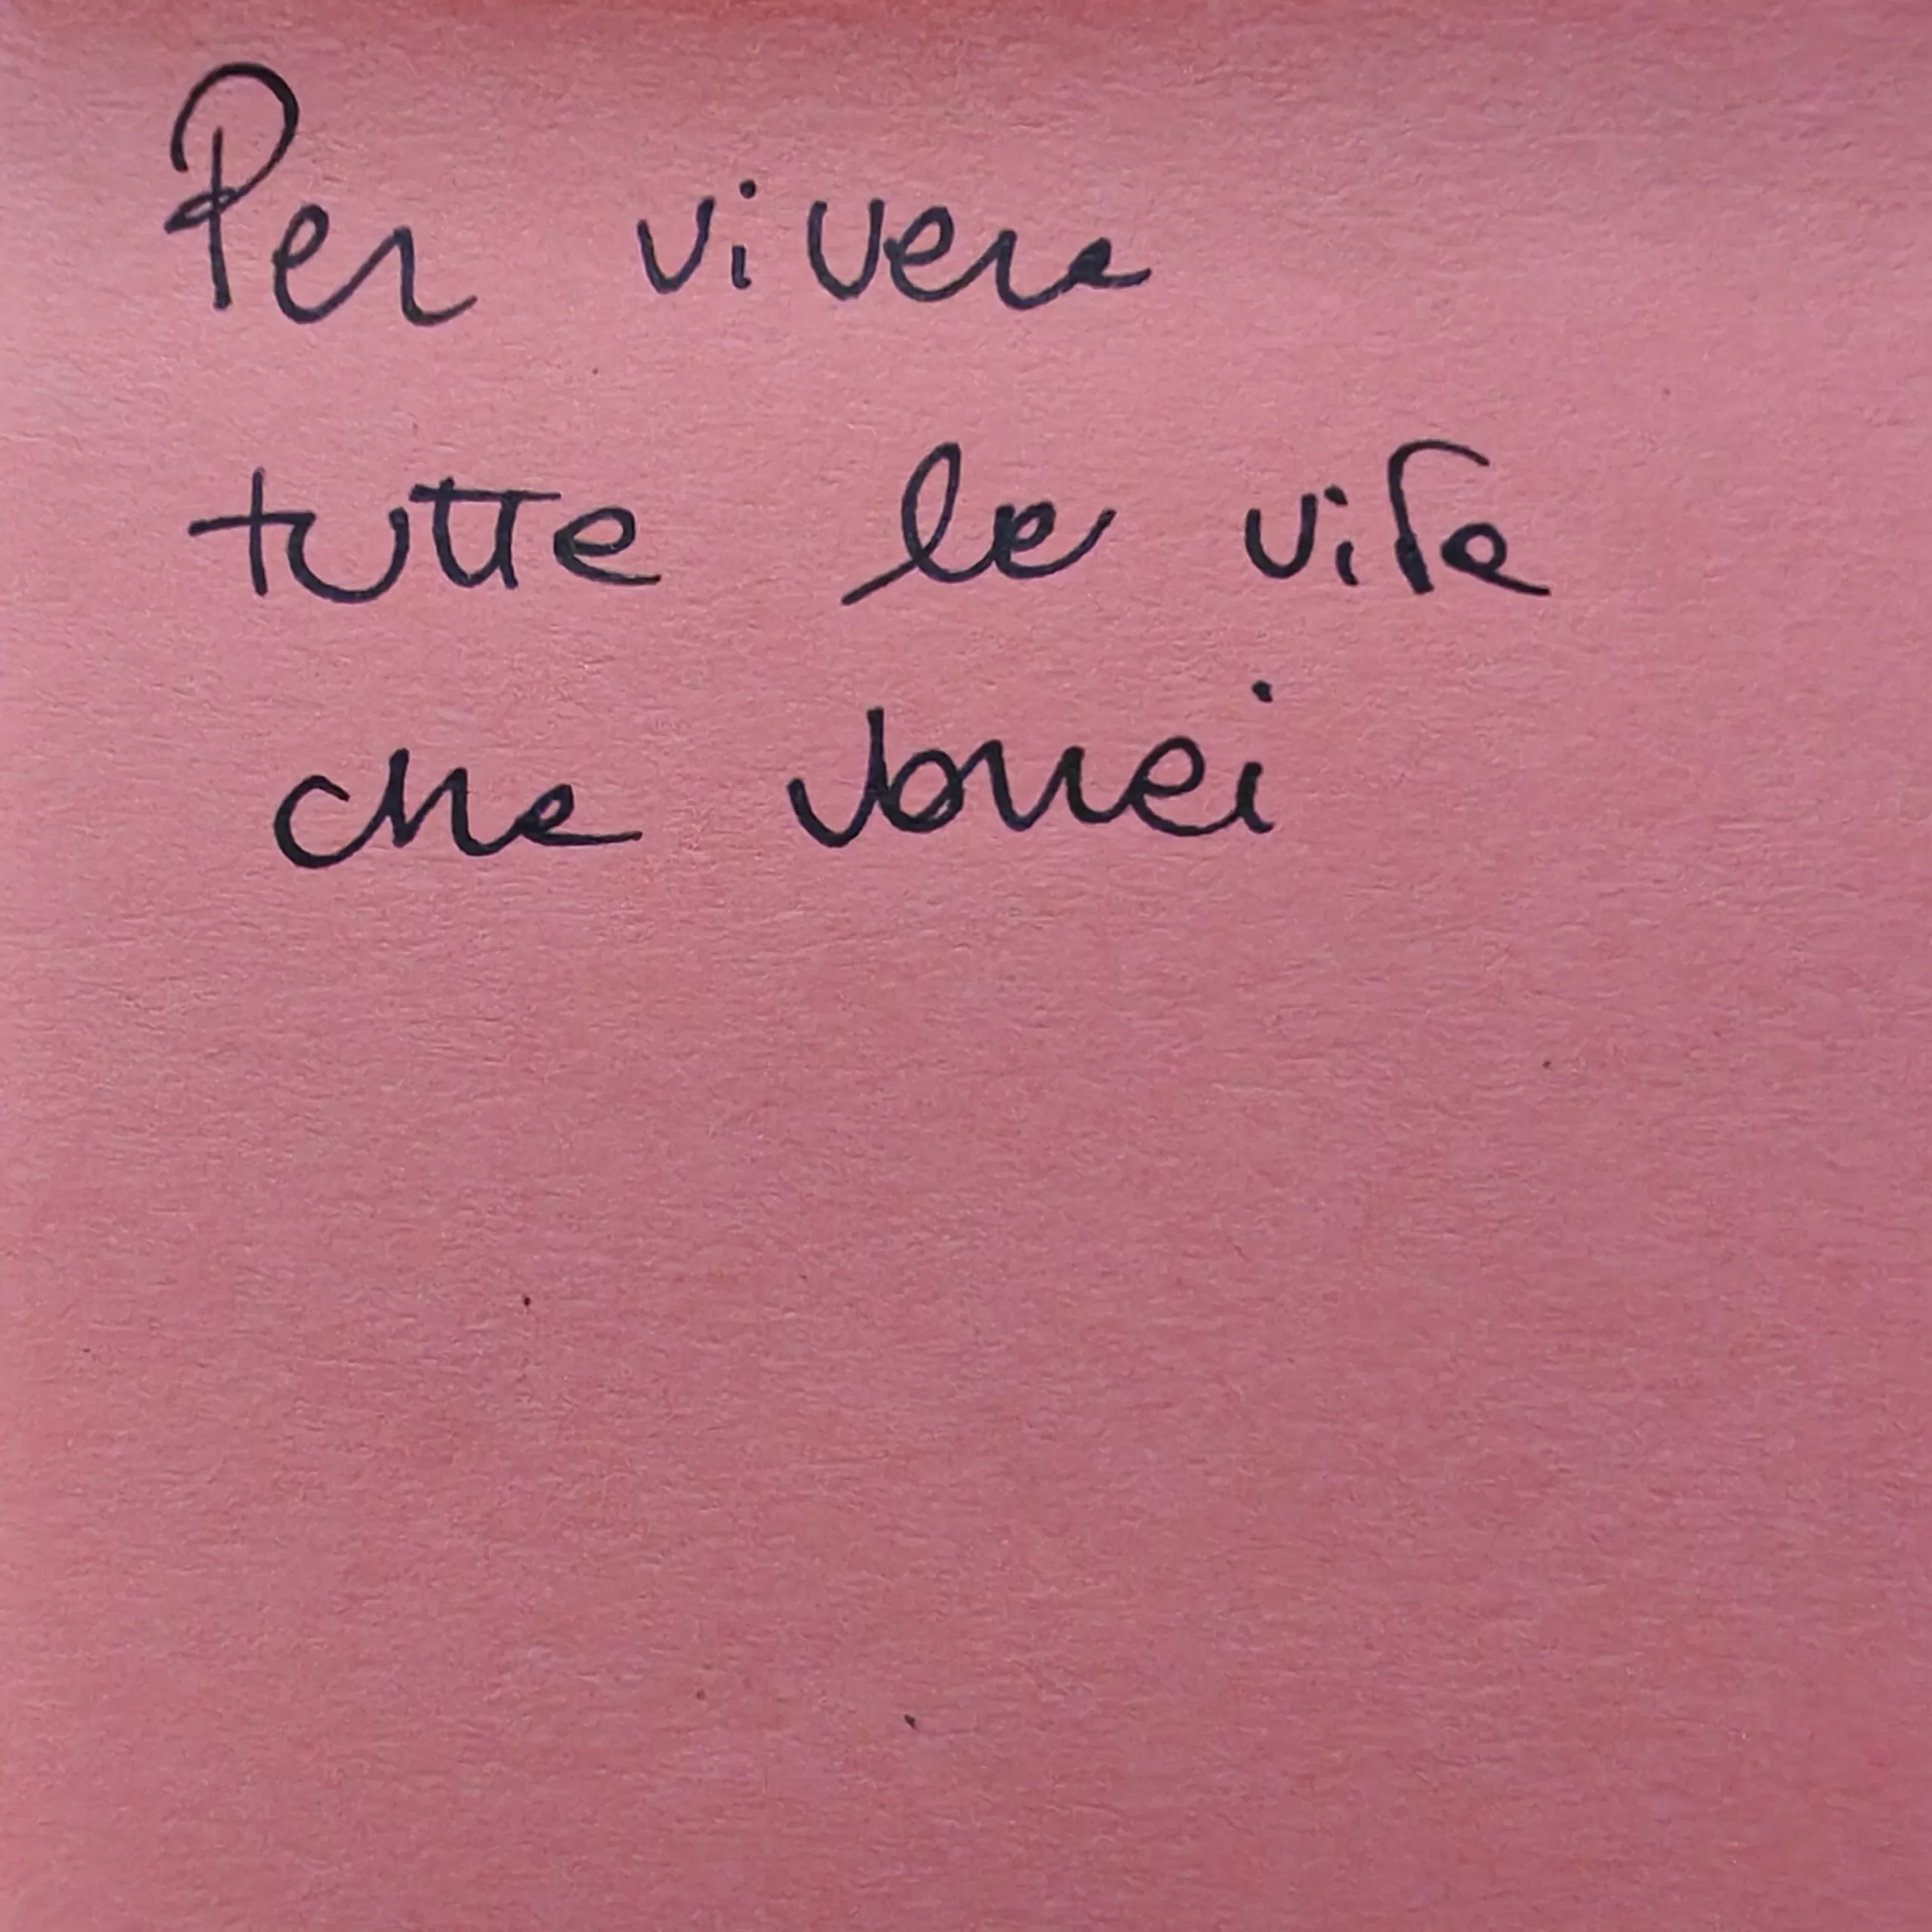 Per vivere
tutte le vite
che vorrei